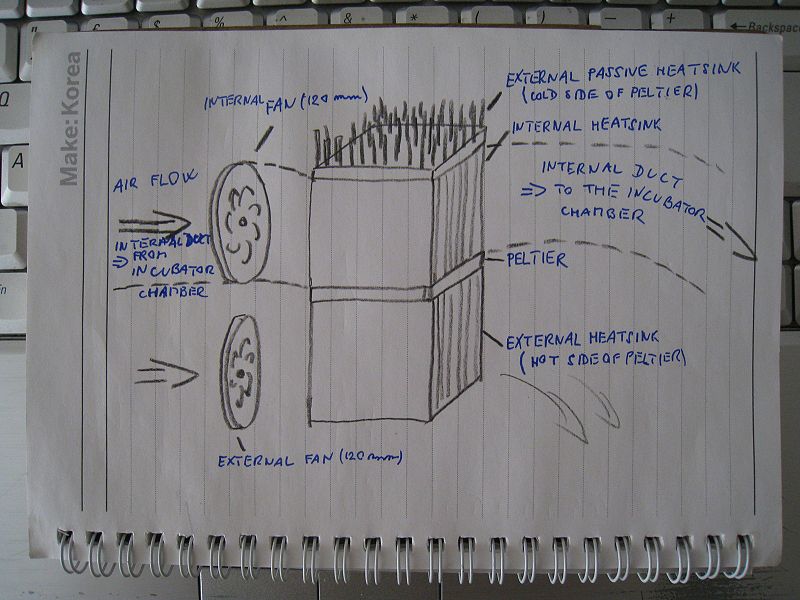 Make: Korea
INTERNAL FAN (120 mm)
EXTERNAL PASSIVE HEATSINK
(COLD SIDE OF PELTIER)
INTERNAL HEATSINK
AIR FLOW
INTERNAL DUCT
⇒ TO THE INCUBATOR
CHAMBER
INTERNAL DUCT
⇒ FROM
INCUBATOR
CHAMBER
PELTIER
EXTERNAL HEATSINK
(HOT SIDE OF PELTIER)
EXTERNAL FAN (120 mm)
← Backspace
A